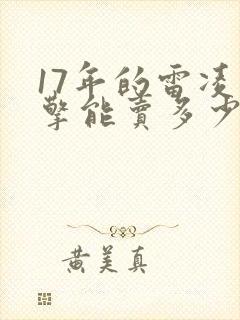 17年的雷凌
擎能卖多少
黄美真